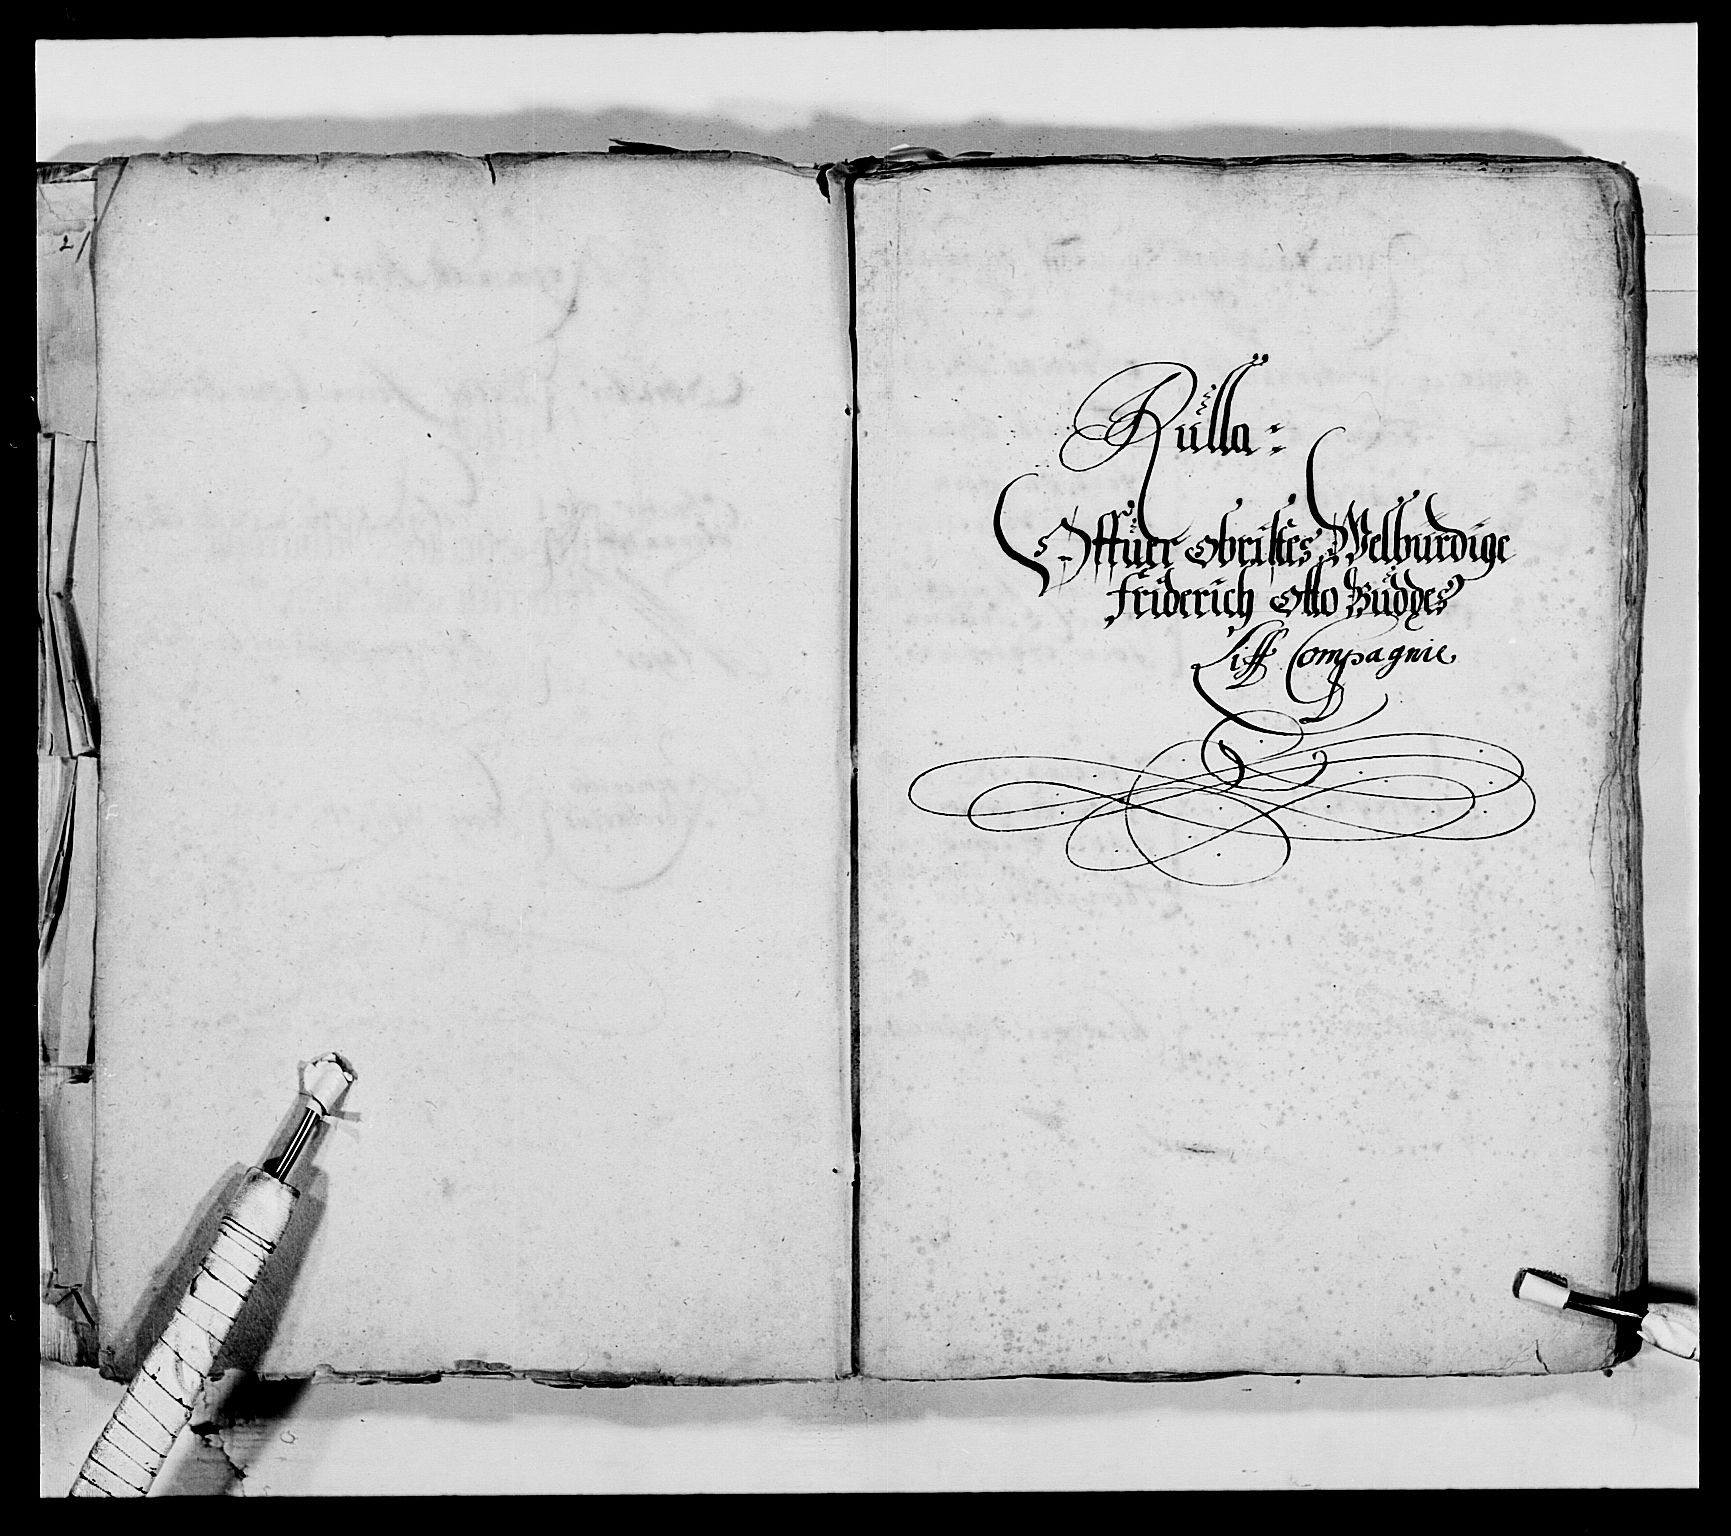 21
Rülla :
Offüer Obristes Welburdige
Friderich Otto Büddes
Liff Compagnie